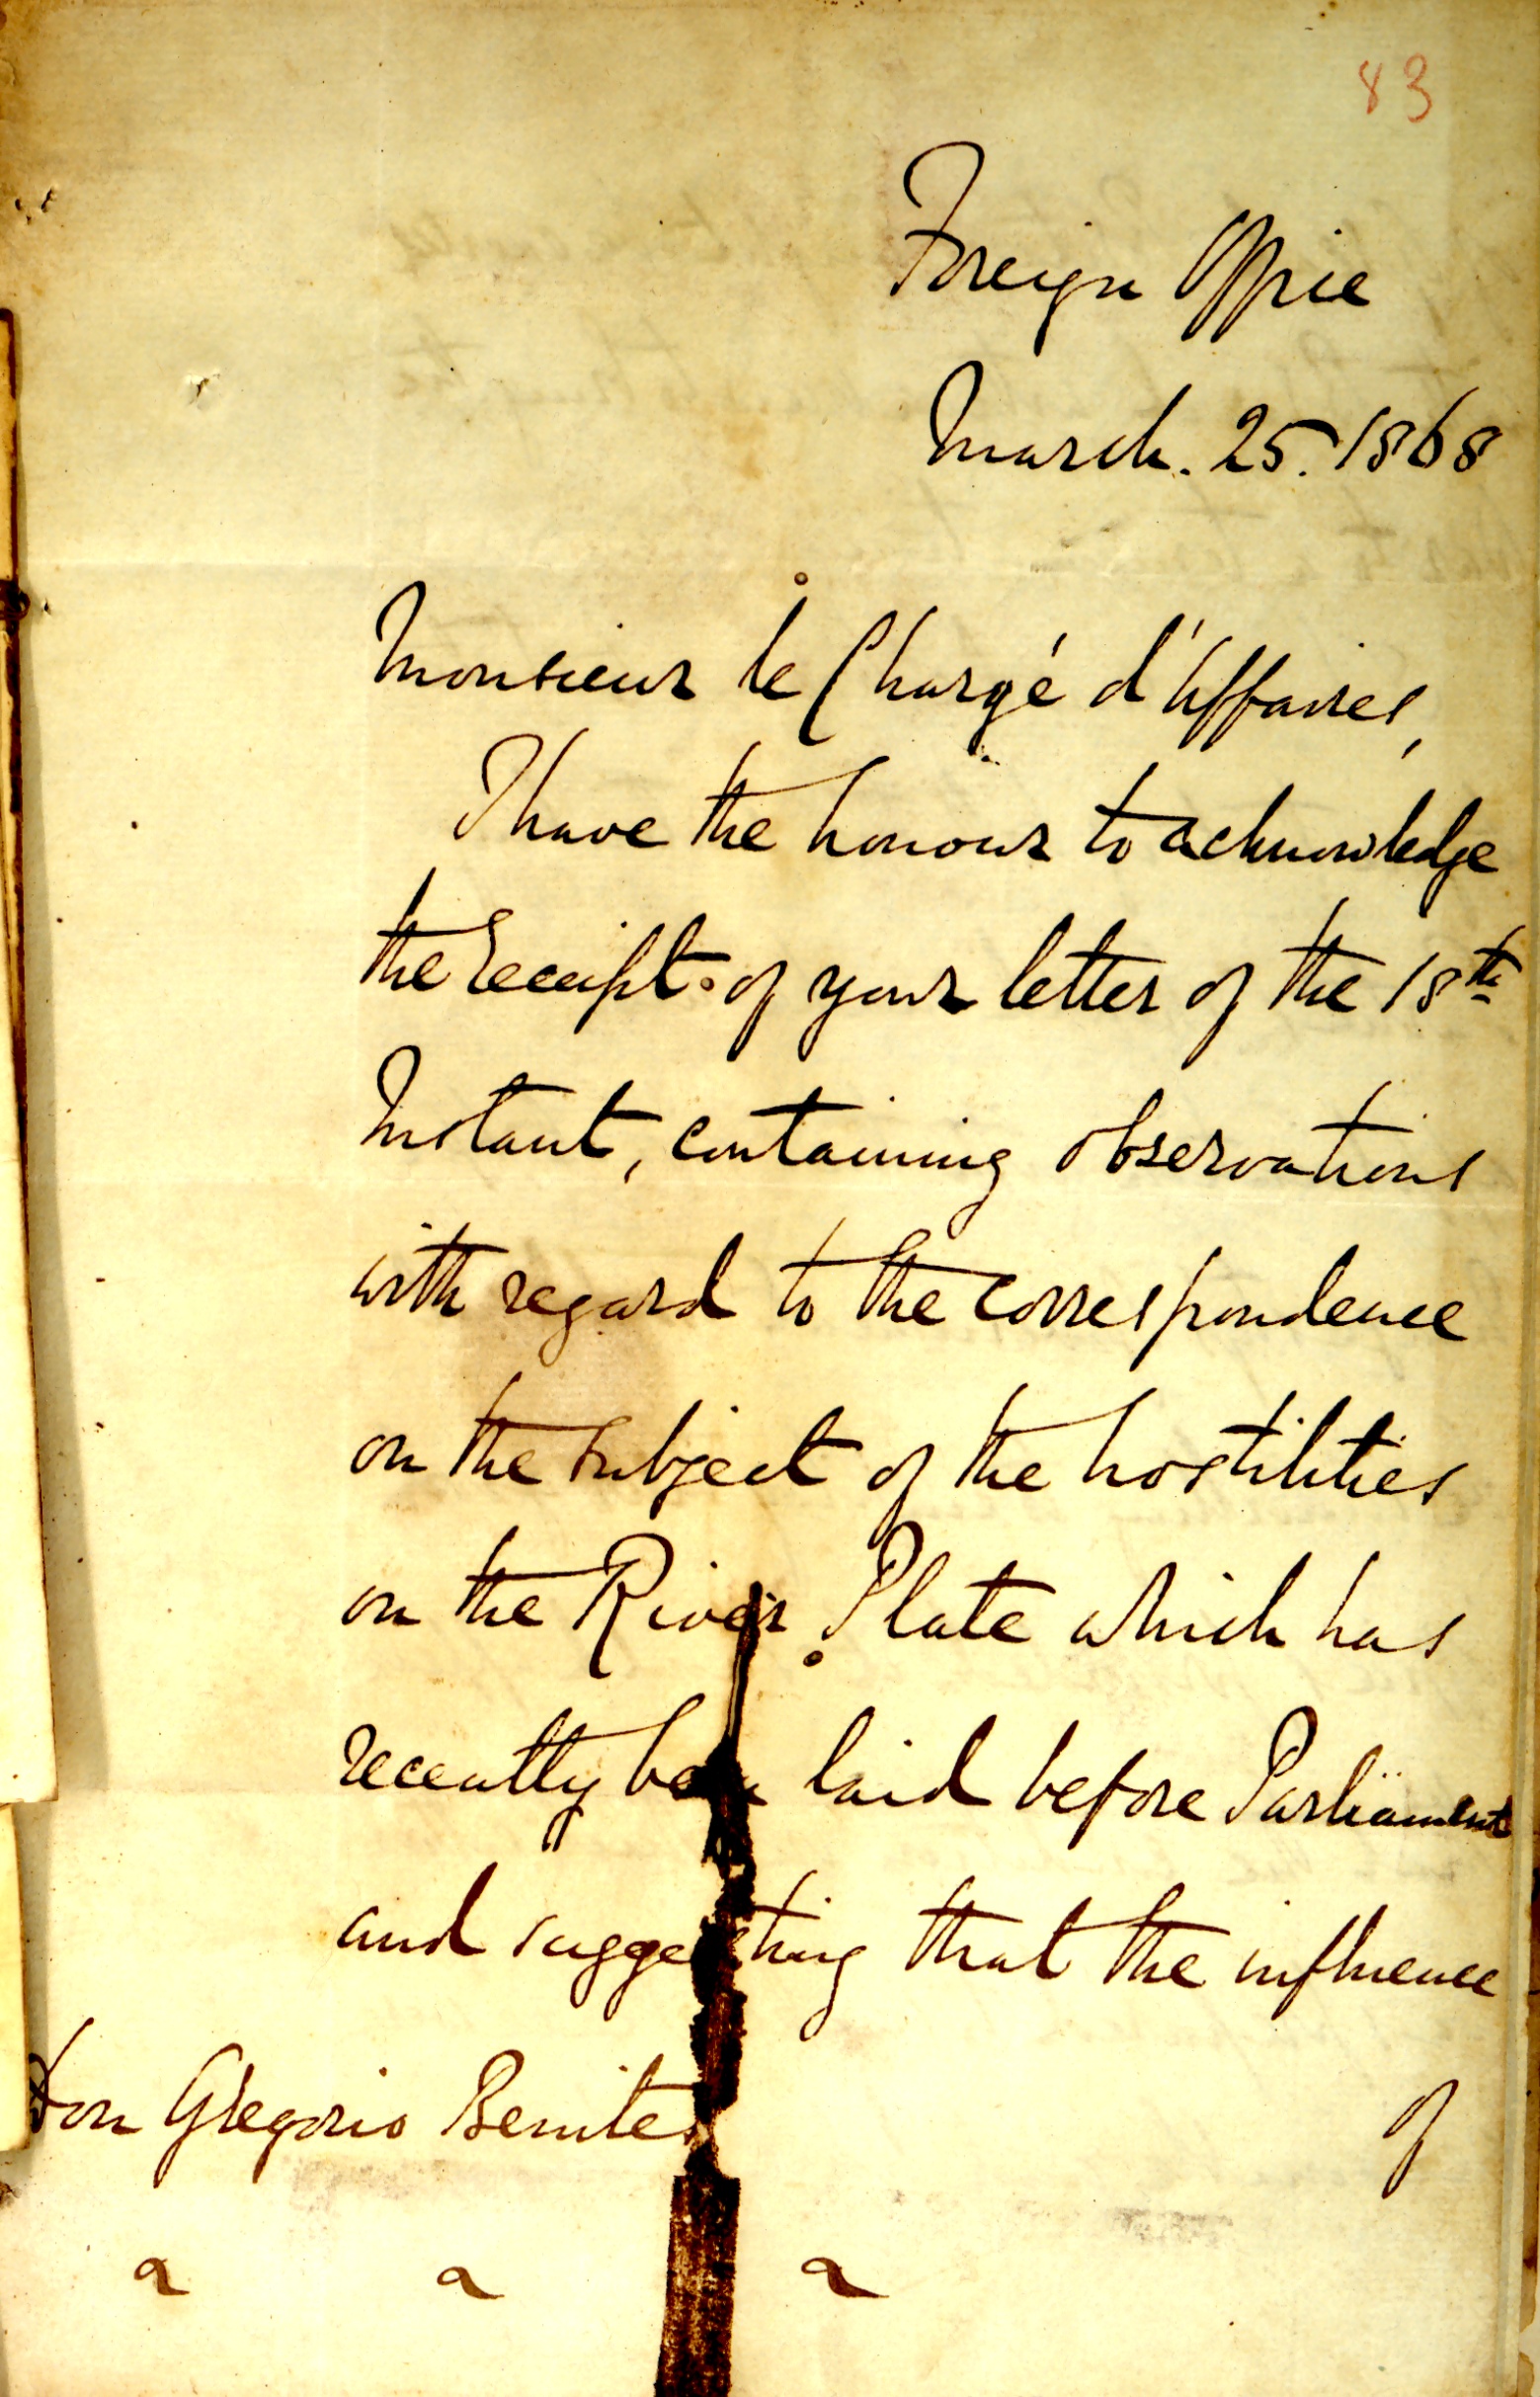 83
Foreign Office
March. 25. 1868
Monsieur le Chargé d'Affaires,
I have the honour to acknowledge
the receipt of your letter of the 18th
Instant, containing observations
with regard to the correspondence
on the subject of the hostilities
on the River Plate which has
recently been laid before Parliament
and suggesting that the influence
Don Gregorio Benites
of